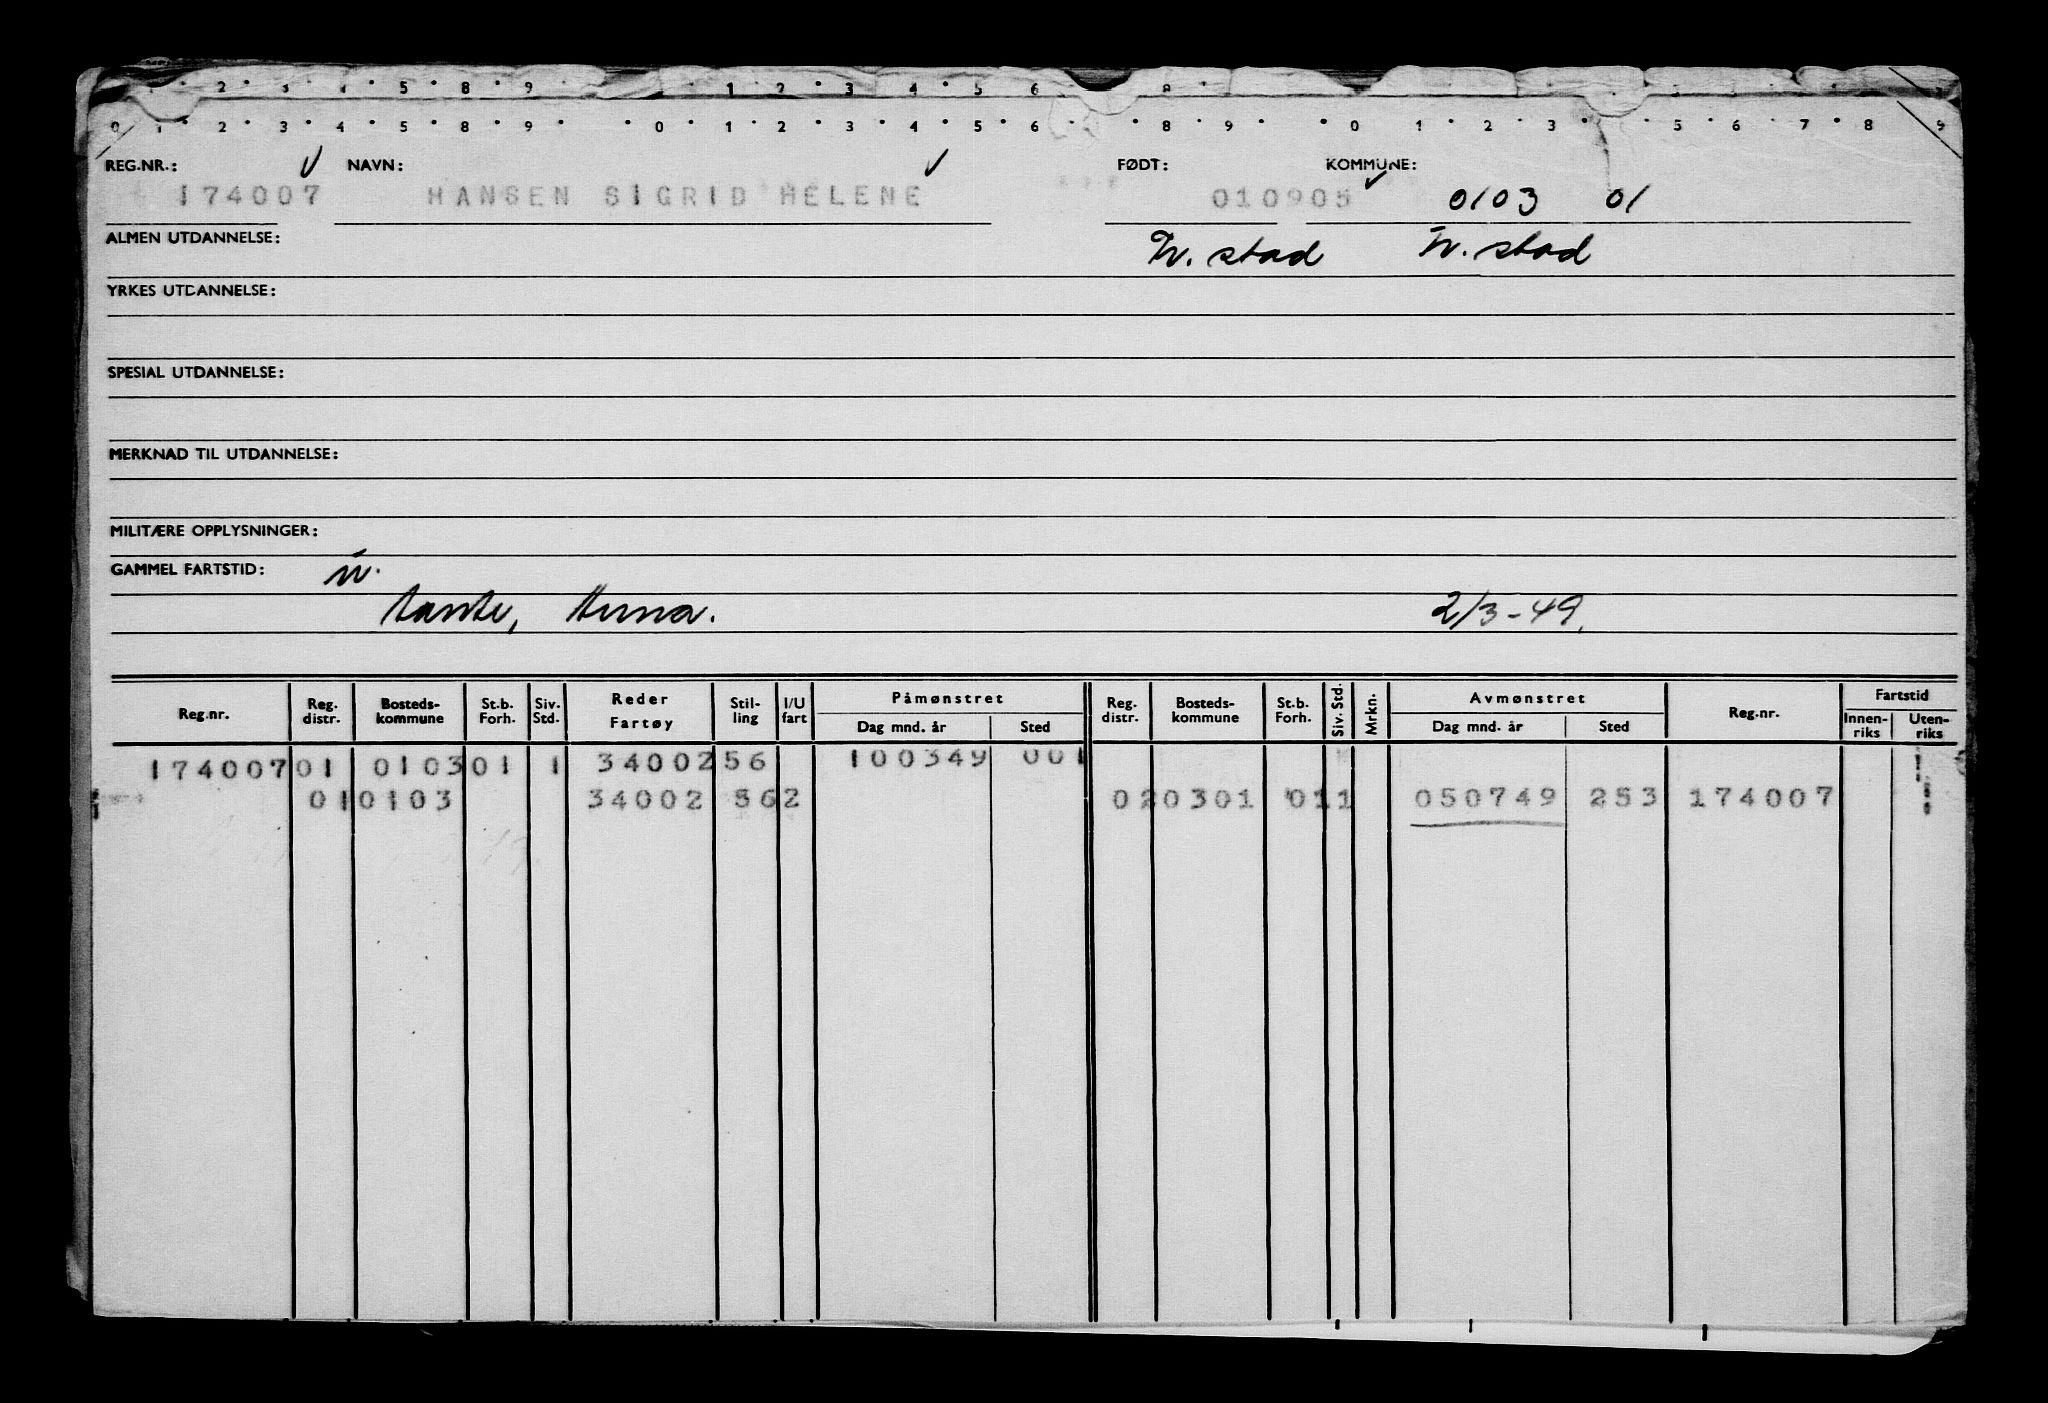 2 3 4 5 8 9 1 2 3 4 5 6 8
0 1 2 3 4 5 8 9 0 1 2 3 4 5 6 8 9 0 1 2 3 5 6 7 8 9
REG.NR.: NAVN: FØDT: KOMMUNE:
174007 HANSEN SIGRID HELENE 010905 0103 01
ALMEN UTDANNELSE: Fr. stad Fr. stad
YRKES UTDANNELSE:
SPESIAL UTDANNELSE:
MERKNAD TIL UTDANNELSE:
MILITÆRE OPPLYSNINGER:
GAMMEL FARTSTID:
tante, Anna. 2/3-49.
Reg.nr. Reg. distr. Bosteds-kommune St.b. Forh. Siv. Std. Reder Fartøy Stil-ling I/U fart Påmønstret Dag mnd. år Sted Reg. distr. Bosteds-kommune St.b. Forh. Siv. Std. Mrkn. Avmønstret Dag mnd. år Sted Reg.nr. Fartstid Innen-riks Uten-riks
174007 01 0103 01 1 34002 56 100349 001
01 0103 34002 56 2 02 0301 01 1 050749 253 174007